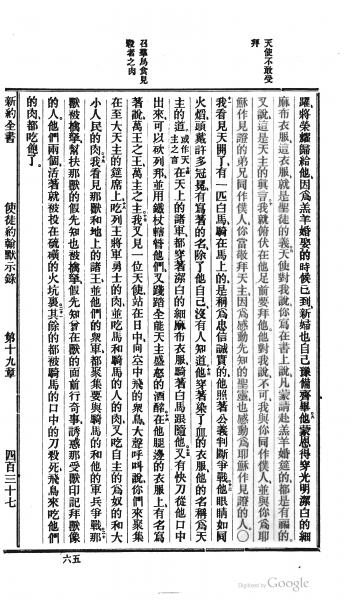 天使不敢受
拜
召羣鳥食見
殺者之肉
躍將榮耀歸給他因爲羔羊婚娶的時候已到新婦也自己豫備齊畢他蒙恩得穿光明潔白的細
麻布衣服這衣服就是聖徒的義天使對我說你寫在書上說凡蒙請赴羔羊婚筵的都是有福的
又說這是天主的眞言我就俯伏在他足前要拜他他對我說不可我與你同作僕人並與你爲耶
穌作見證的弟兄同作僕人你當敬拜天主因爲感動先知的聖靈也感動爲耶穌作見證的人○
我看見天開了有一匹白馬騎在馬上的是稱爲忠信誠實的他照著公義判斷爭戰他眼睛如同
火焰頭戴許多冠冕有寫著的名除了他自己沒有人知道他穿著染了血的衣服他的名稱爲天
主的道或作天主之言在天上的諸軍都穿著潔白的細麻布衣服騎著白馬跟隨他又有快刀從他口中
出來可以砍列邦並用鐵杖轄管他們又踹全能天主感怒的酒醡在他腿邊的衣服上有名寫
著說萬王之王萬主之主我又見一位天使站在日中向空中飛的衆鳥大聲呼叫說你們來聚集
在至大天主的筵席上吃列王將軍勇士的肉並吃馬和騎馬的人的肉又吃自主的爲奴的和大
小人民的肉我看見那獸和地上的諸王並他們的衆軍都聚集要與騎馬的和他的軍兵爭戰那
獸被擒拏幫扶獸的假先知也被擒拏這假先知曾在獸的面前行奇事誘惑那受獸印記拜獸像
的人他們兩個活著就被投在硫磺的火坑裏其餘的都被騎馬的口中的刀殺死飛鳥來吃他們
的肉都吃飽了
新約全書 使徒約翰默示錄 第十九章 四百三十七
六五
Digitized by Google